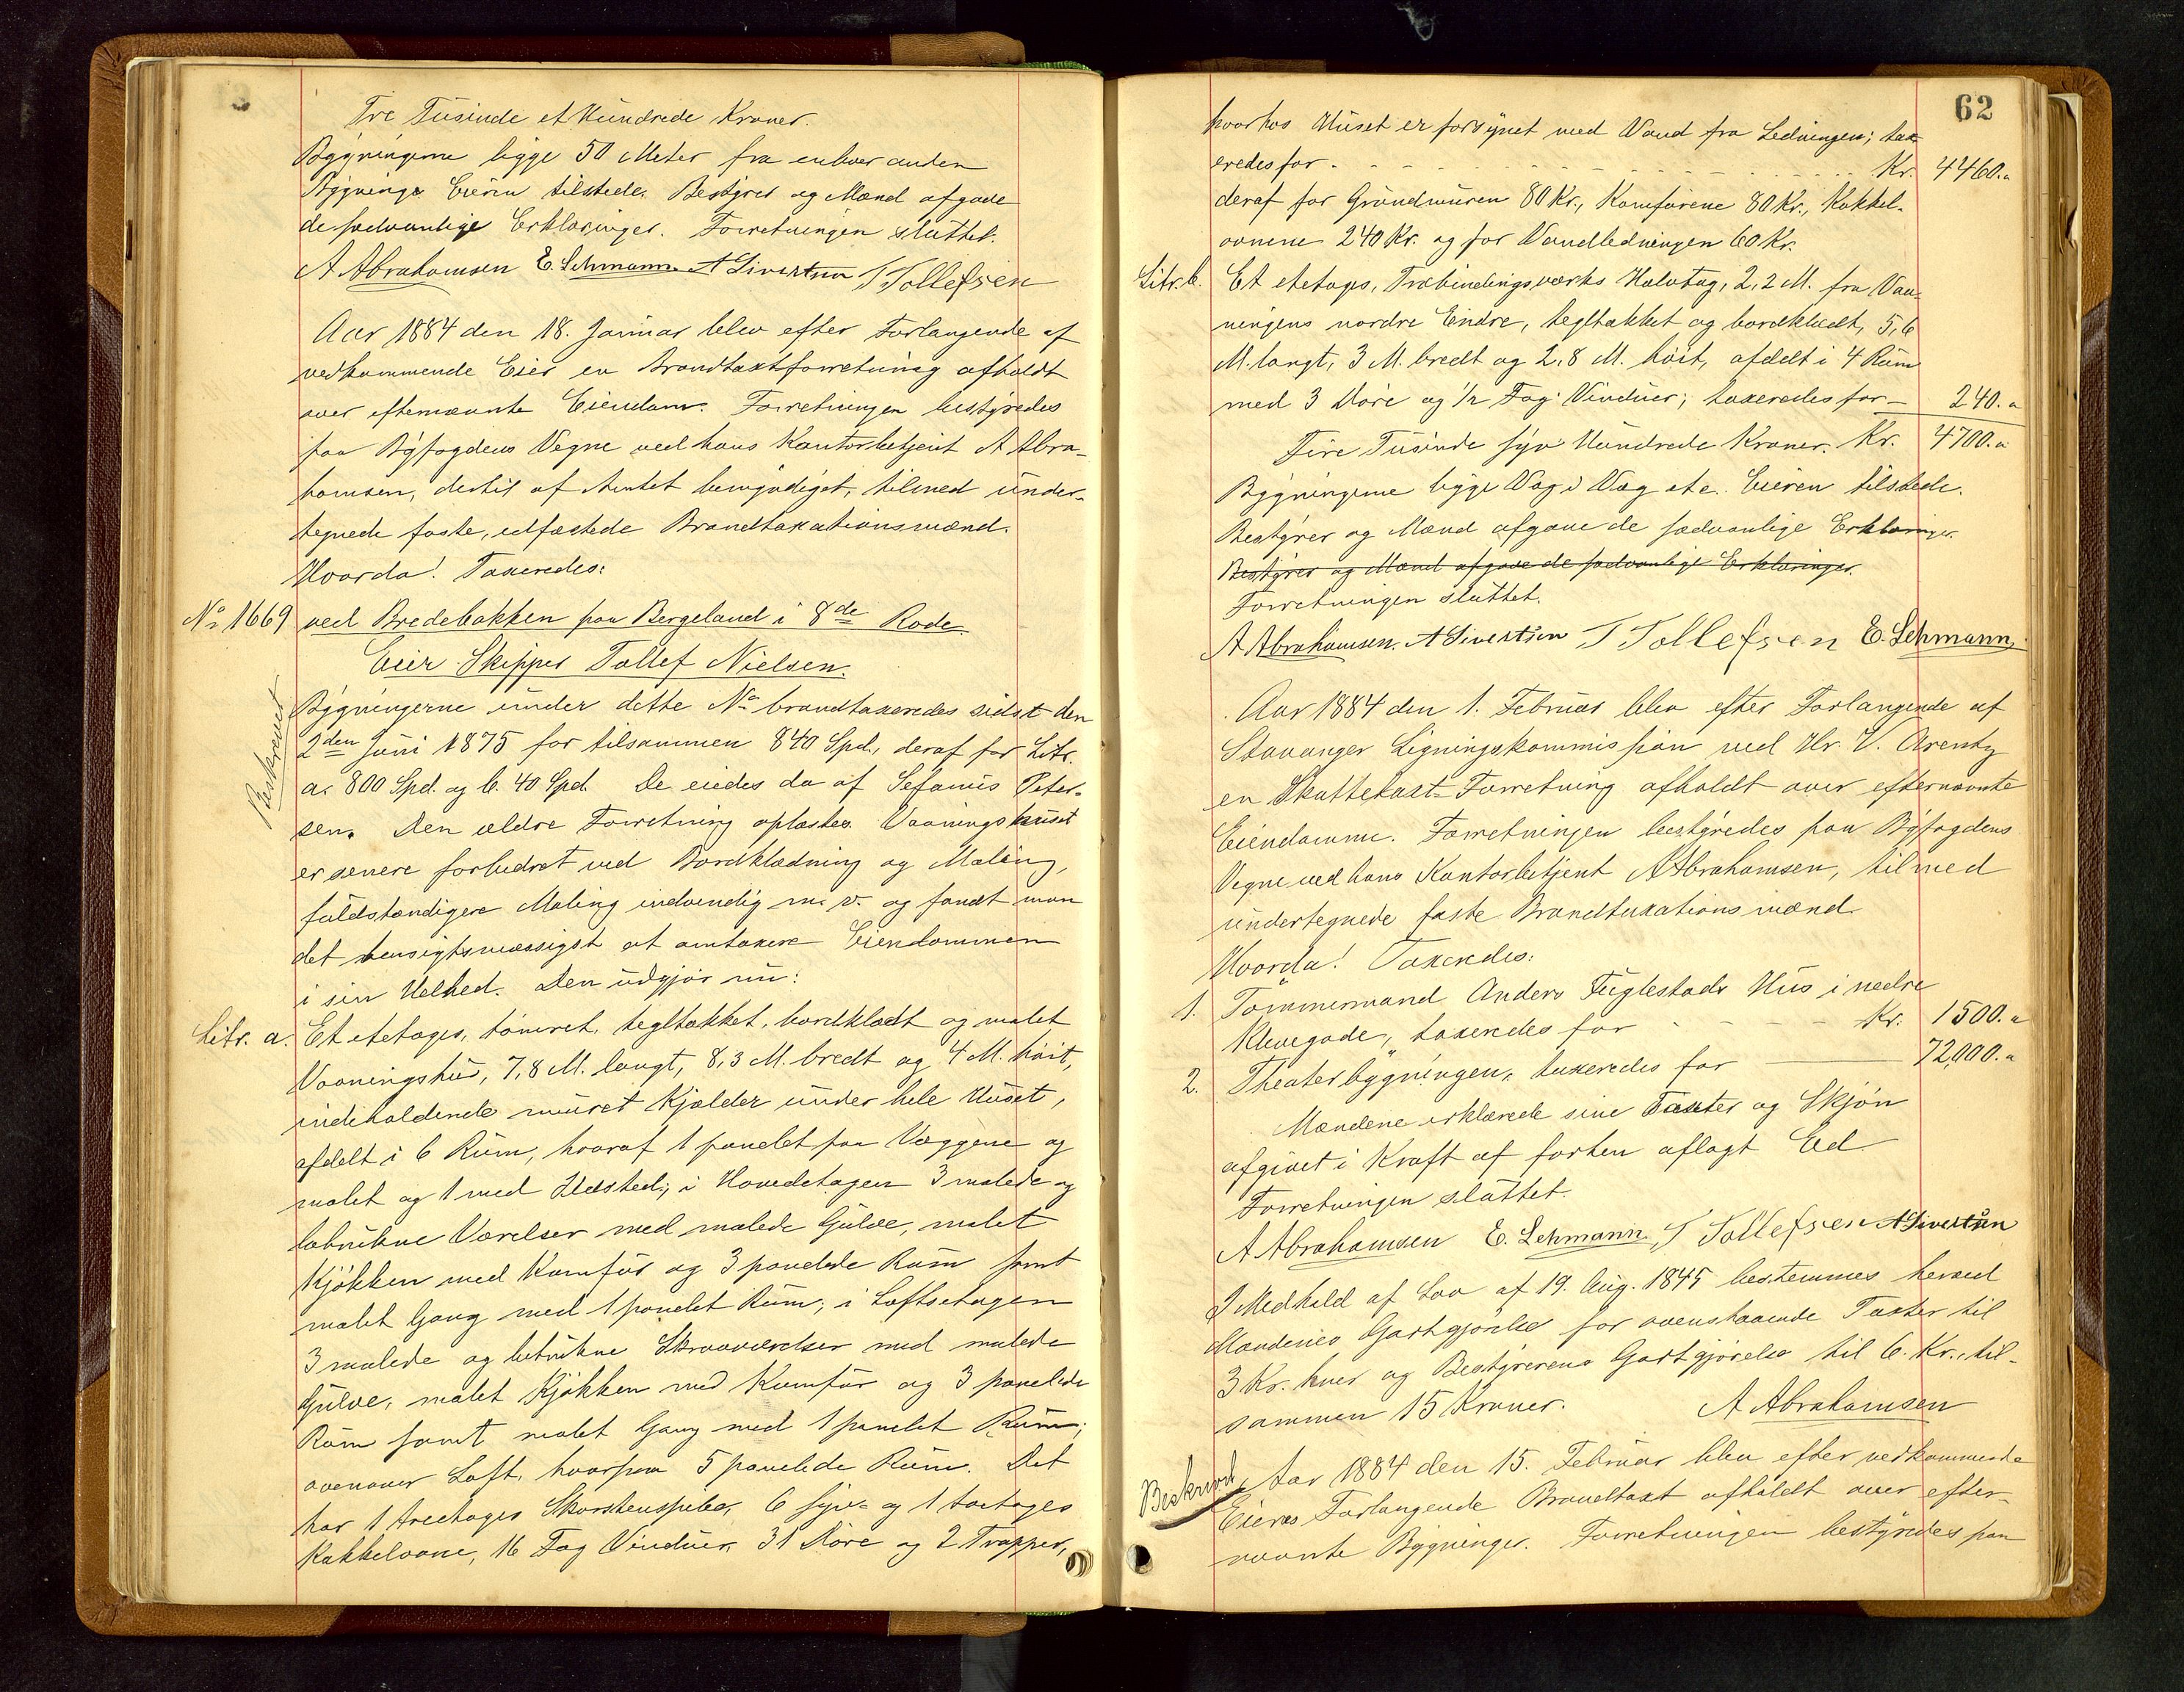 Tre Tusinde et Hundrede Kroner.
Bygningerne ligge 50 Meter fra enhver anden
Bygning. Eieren tilstede. Bestyrer og Mænd afgave
de sædvanlige Erklæringer. Forretningen sluttet.
A Abrahamsen E. Lehmann. A Sivertsen T Tollefsen
Aar 1884 den 18. Januar blev efter Forlangende af
vedkommende Eier en Brandtaxtforretning afholdt
over efternævnte Eiendom. Forretningen bestyredes
paa Byfogdens Vegne ved hans Kontorbetjent A Abra-
hamsen, dertil af Amtet bemyndiget, tilmed under-
tegnede faste, edfæstede Brandtaxationsmænd.
Hvorda! Taxeredes:
No 1669 ved Bredebakken paa Bergeland i 8de Rode.
Eier Skipper Tollef Nielsen.
Beskrevet
Bygningerne under dette No brandtaxeredes sidst den
2den Juni 1875 for tilsammen 840 Spd., deraf for Litr.
a. 800 Spd. og b. 40 Spd. De eiedes da af Sefanus Peter-
sen. Den ældre Forretning oplæstes. Vaaningshuset
er senere forbedret ved Bordklædning og Maling,
fuldstændigere Maling indvendig m. v. og fandt man
det hensigtsmæssigst at omtaxere Eiendommen
i sin Helhed. Den udgjør nu:
Litr. a. Et etetages, tømret, tegltækket, bordklædt og malet
Vaaningshus, 7,8 M. langt, 8,3 M. bredt og 4 M. høit,
indeholdende muret Kjælder under hele Huset,
afdelt i 6 Rum, hvoraf 1 panelet paa Væggene og
malet og 1 med Ildsted; i Hovedetagen 3 malede og
betrukne Værelser med malede Gulve, malet
Kjøkken med Komfur og 3 panelede Rum samt
malet Gang med 1 panelet Rum; i Loftsetagen
3 malede og betrukne Skraaværelser med malede
Gulve, malet Kjøkken med Komfur og 3 panelede
Rum samt malet Gang med 1 panelet Rum;
ovenover Loft, hvorpaa 5 panelede Rum. Det
har 1 treetages Skorstenspibe, 6 Fyr- og 1 toetages
Kakkelovne, 16 Fag Vinduer, 31 Døre og 2 Trapper,
62
hvorhos Huset er forsynet med Vand fra Ledningen; tax-
eredes for . . . Kr. 4460.
deraf for Grundmuren 80 Kr., Komfurene 80 Kr., Kakkel-
ovnene 240 Kr. og for Vandledningen 60 Kr.
Litr. b. Et etetages, Træbindingsværks Halvtag, 2,2 M. fra Vaa-
ningens nordre Ende, tegltækket og bordklædt, 5,6
M. langt, 3 M. bredt og 2,8 M. høit, afdelt i 4 Rum
med 3 Døre og 1/2 Fag Vinduer; taxeredes for - 240.
Fire Tusinde syv Hundrede Kroner. Kr. 4700.
Bygningerne ligge Væg i Væg etc. Eieren tilstede.
Bestyrer og Mænd afgave de sædvanlige Erklæringer.
Bestyrer og Mænd afgave de sædvanlige Erklæringer.
Forretningen sluttet.
A Abrahamsen. A Sivertsen T Tollefsen E. Lehmann.
Aar 1884 den 1. Februar blev efter Forlangende af
Stavanger Ligningskommission ved Hr. V. Arentz
en Skattetaxt-Forretning afholdt over efternævnte
Eiendomme. Forretningen bestyredes paa Byfogdens
Vegne ved hans Kontorbetjent A Abrahamsen, tilmed
undertegnede faste Brandtaxationsmænd.
Hvorda! Taxeredes:
1. Tømmermand Anders Fuglestads Hus i nedre
Klevegade, taxeredes for - - - Kr. 1500.
2. Theaterbygningen, taxeredes for 72,000.
Mændene erklærede sine Taxter og Skjøn
afgivet i Kraft af forhen aflagt Ed.
Forretningen sluttet.
A Abrahamsen E. Lehmann. T Tollefsen A Sivertsen
I Medhold af Lov af 19. Aug. 1845 bestemmes herved
Mændenes Godtgjørelse for ovenstaaende Taxter til
3 Kr. hver og Bestyrerens Godtgjørelse til 6. Kr., til-
sammen 15 Kroner. A Abrahamsen
Beskrevet Aar 1884 den 15. Februar blev efter vedkommende
Eieres Forlangende Brandtaxt afholdt over efter-
nævnte Bygninger. Forretningen bestyredes paa